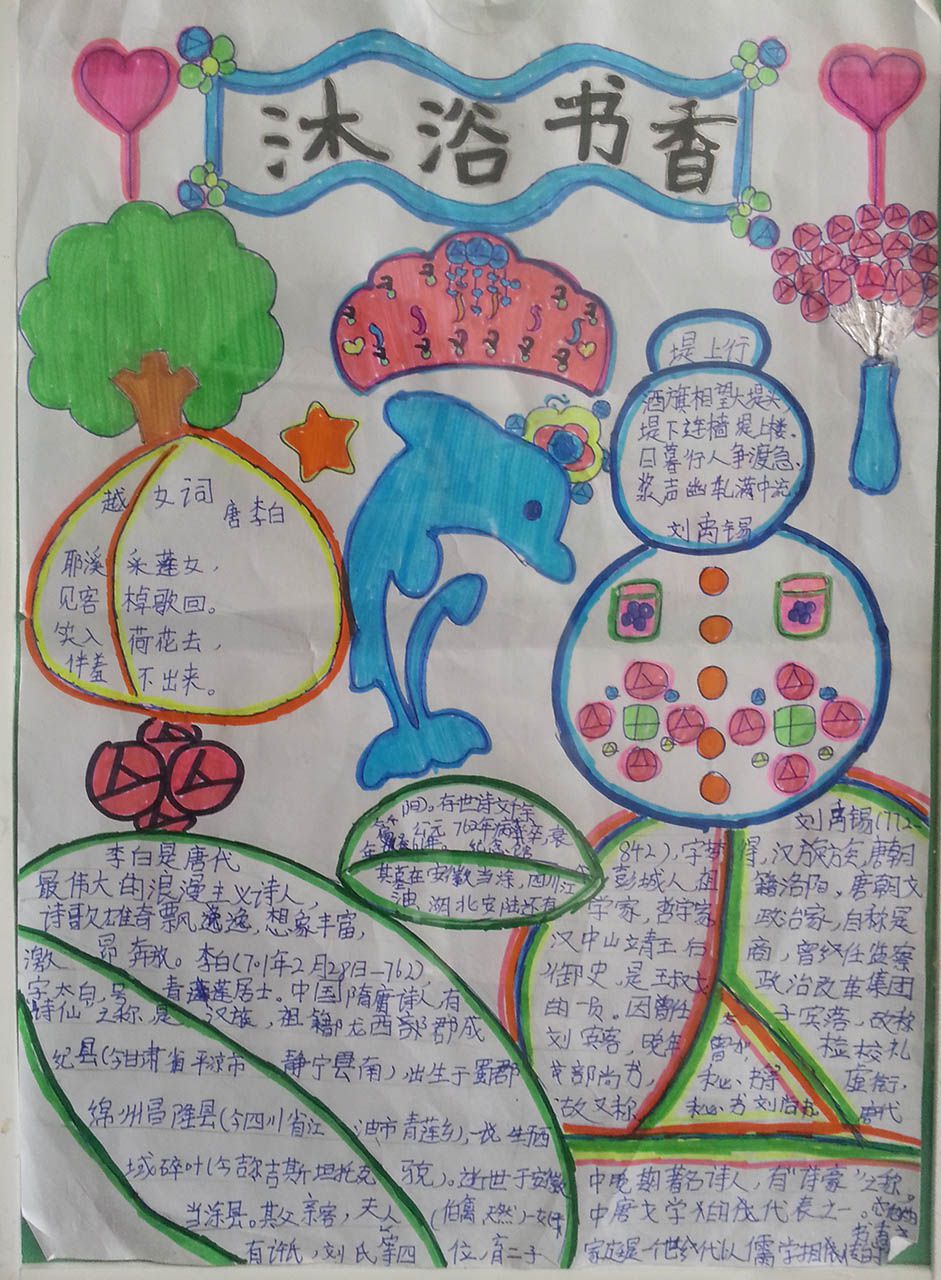 沐浴书香
堤上行
酒旗相望大堤头
堤下连樯堤上楼。
日暮行人争渡急
桨声幽轧满中流
刘禹锡
越女词
唐李白
耶溪采莲女，
见客棹歌回。
笑入荷花去，
佯羞不出来。
李白是唐代
最伟大的浪漫主义诗人，
诗歌雄奇飘逸，想象丰富，
激昂奔放。李白(701年2月28日-762)，
字太白，号青莲居士。中国隋唐诗人，有
诗仙之称，是汉族，祖籍陇西郡郡成
纪县(今甘肃省平凉市静宁县南)，出生于蜀郡
绵州昌隆县(今四川省江油市青莲乡)，一说生于西
域碎叶(今吉尔吉斯斯坦托克克)。逝世于安徽
当涂县。其父亲客，夫人
有许氏，刘氏等四位，育二子
间)。存世诗文千余
公元762年病
其墓在安徽当涂，四川江
油，湖北安陆还有
刘禹锡(772-
842)，字梦得，汉族族，唐朝
彭城人，祖籍洛阳。唐朝文
学家，哲学家，政治家，自称是
汉中山靖王后商，曾经任监察
御史，是王叔文政治改革集团
的一员。因曾任子宾落，故称
刘宾客，晚年曾加检校礼
部尚书，秘书虚衔，
故又称秘书刘尚书唐代
中晚期著名诗人，有“诗豪”之称。
中唐文学的代表之一。
家庭是一个世代以儒学相传的
书香